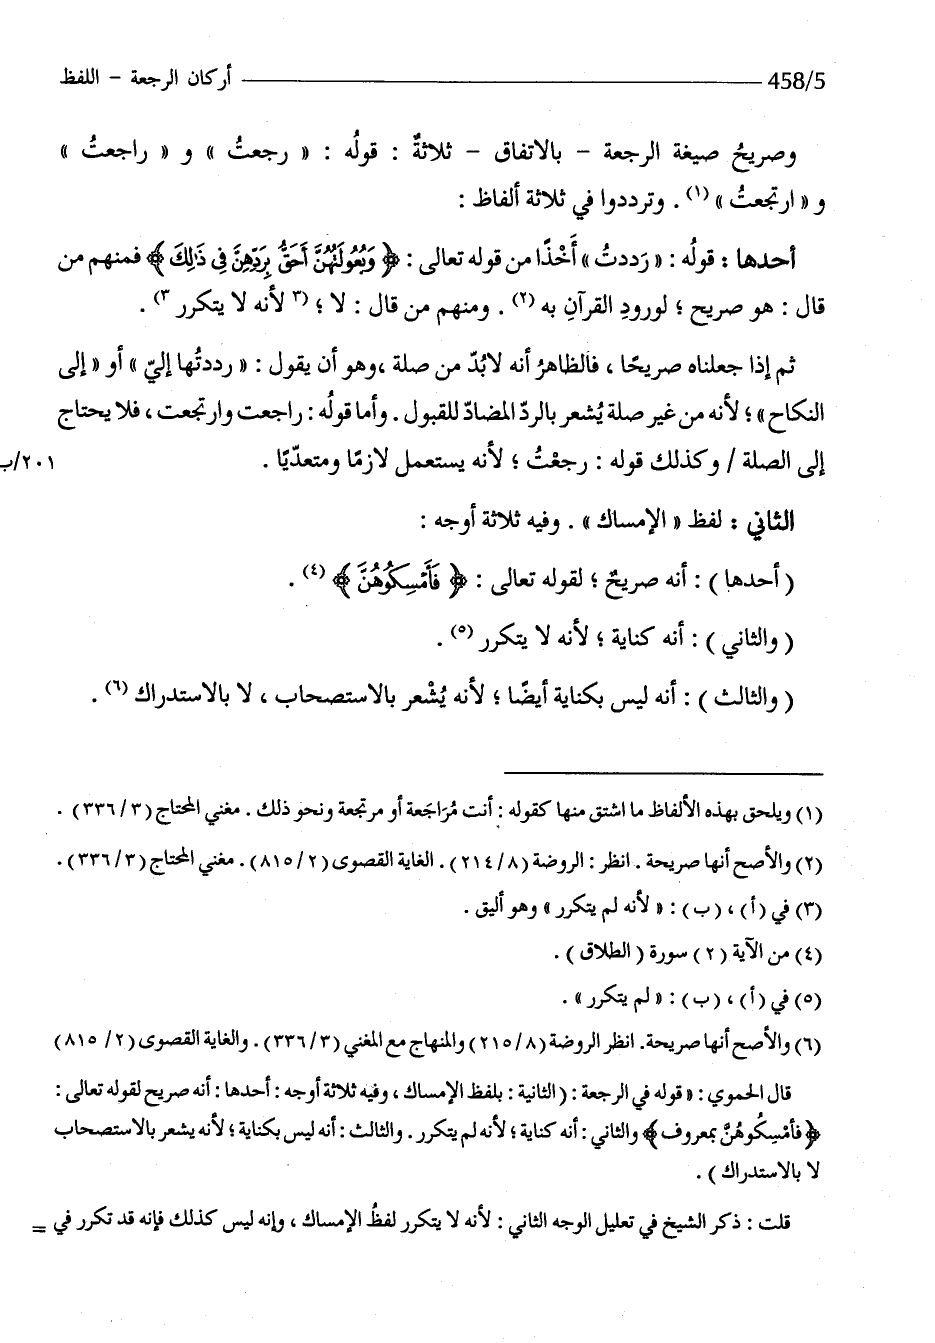 458/5 ــــــــ أركان الرجعة – اللفظ
وصريحُ صيغة الرجعة – بالاتفاق – ثلاثةٌ : قولُه : « رجعتُ » و « راجعتُ »
و « ارتجعتُ » (١) . وترددوا في ثلاثة ألفاظ :
أحدها : قولُه : « رَددتُ » أَخْذًا من قوله تعالى : ﴿ وَبُعُولَتُهُنَّ أَحَقُّ بِرَدِّهِنَّ فِي ذَٰلِكَ ﴾ فمنهم من
قال : هو صريح ؛ لورودِ القرآنِ به (٢) . ومنهم من قال : لا ؛ (٣ لأنه لا يتكرر ٣) .
ثم إذا جعلناه صريحًا ، فالظاهرُ أنه لابُدّ من صلة ،وهو أن يقول : « رددتُها إليّ » أو « إلى
النكاح» ؛ لأنه من غير صلة يُشعر بالردّ المضادّ للقبول . وأما قولُه : راجعت وارتجعت ، فلا يحتاج
إلى الصلة / وكذلك قوله : رجعْتُ ؛ لأنه يستعمل لازمًا ومتعدّيًا . ٢٠١/ب
الثاني : لفظ « الإمساك » . وفيه ثلاثة أوجه :
( أحدها ) : أنه صريحٌ ؛ لقوله تعالى : ﴿ فَأَمْسِكُوهُنَّ ﴾ (٤) .
( والثاني ) : أنه كناية ؛ لأنه لا يتكرر (٥) .
( والثالث ) : أنه ليس بكناية أيضًا ؛ لأنه يُشْعر بالاستصحاب ، لا بالاستدراك (٦) .
(١) ويلحق بهذه الألفاظ ما اشتق منها كقوله : أنت مُرَاجَعة أو مرتجعة ونحو ذلك . مغني المحتاج (٣ / ٣٣٦) .
(٢) والأصح أنها صريحة . انظر : الروضة (٨/ ٢١٤) . الغاية القصوى (٢ / ٨١٥) . مغني المحتاج (٣ / ٣٣٦) .
(٣) في (أ) ، (ب) : « لأنه لم يتكرر » وهو أليق .
(٤) من الآية (٢) سورة ( الطلاق ) .
(٥) في (أ) ، (ب) : « لم يتكرر » .
(٦) والأصح أنها صريحة. انظر الروضة (٨/ ٢١٥) والمنهاج مع المغني (٣ / ٣٣٦) . والغاية القصوى (٢ / ٨١٥)
قال الحموي : « قوله في الرجعة : ( الثانية : بلفظ الإمساك ، وفيه ثلاثة أوجه : أحدها : أنه صريح لقوله تعالى :
﴿ فأمْسِكُوهُنَّ بمعروف ﴾ والثاني : أنه كناية ؛ لأنه لم يتكرر . والثالث : أنه ليس بكناية ؛ لأنه يشعر بالاستصحاب
لا بالاستدراك ) .
قلت : ذكر الشيخ في تعليل الوجه الثاني : لأنه لا يتكرر لفظُ الإمساك ، وإنه ليس كذلك فإنه قد تكرر في =